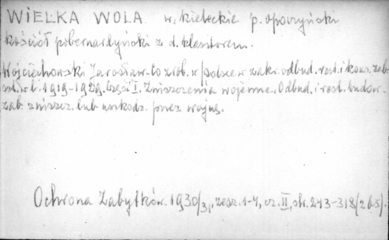 WIELKA WOLA w. kieleckie p. opoczyński
Kościół pobernardyński z d. klasztorem.
Wojciechowski Jarosław. Co zrob. w Polsce w zakr. odbud. rest. i kons. zab.
szt. w l. 1919-1929. Część I. Zniszczenia wojenne. Odbud. i rest. budow.
zab. zniszcz. lub uszkodz. przez wojnę.
Ochrona Zabytków. 1930/31, zesz. 1-4, cz. II, str. 243-318 (265).